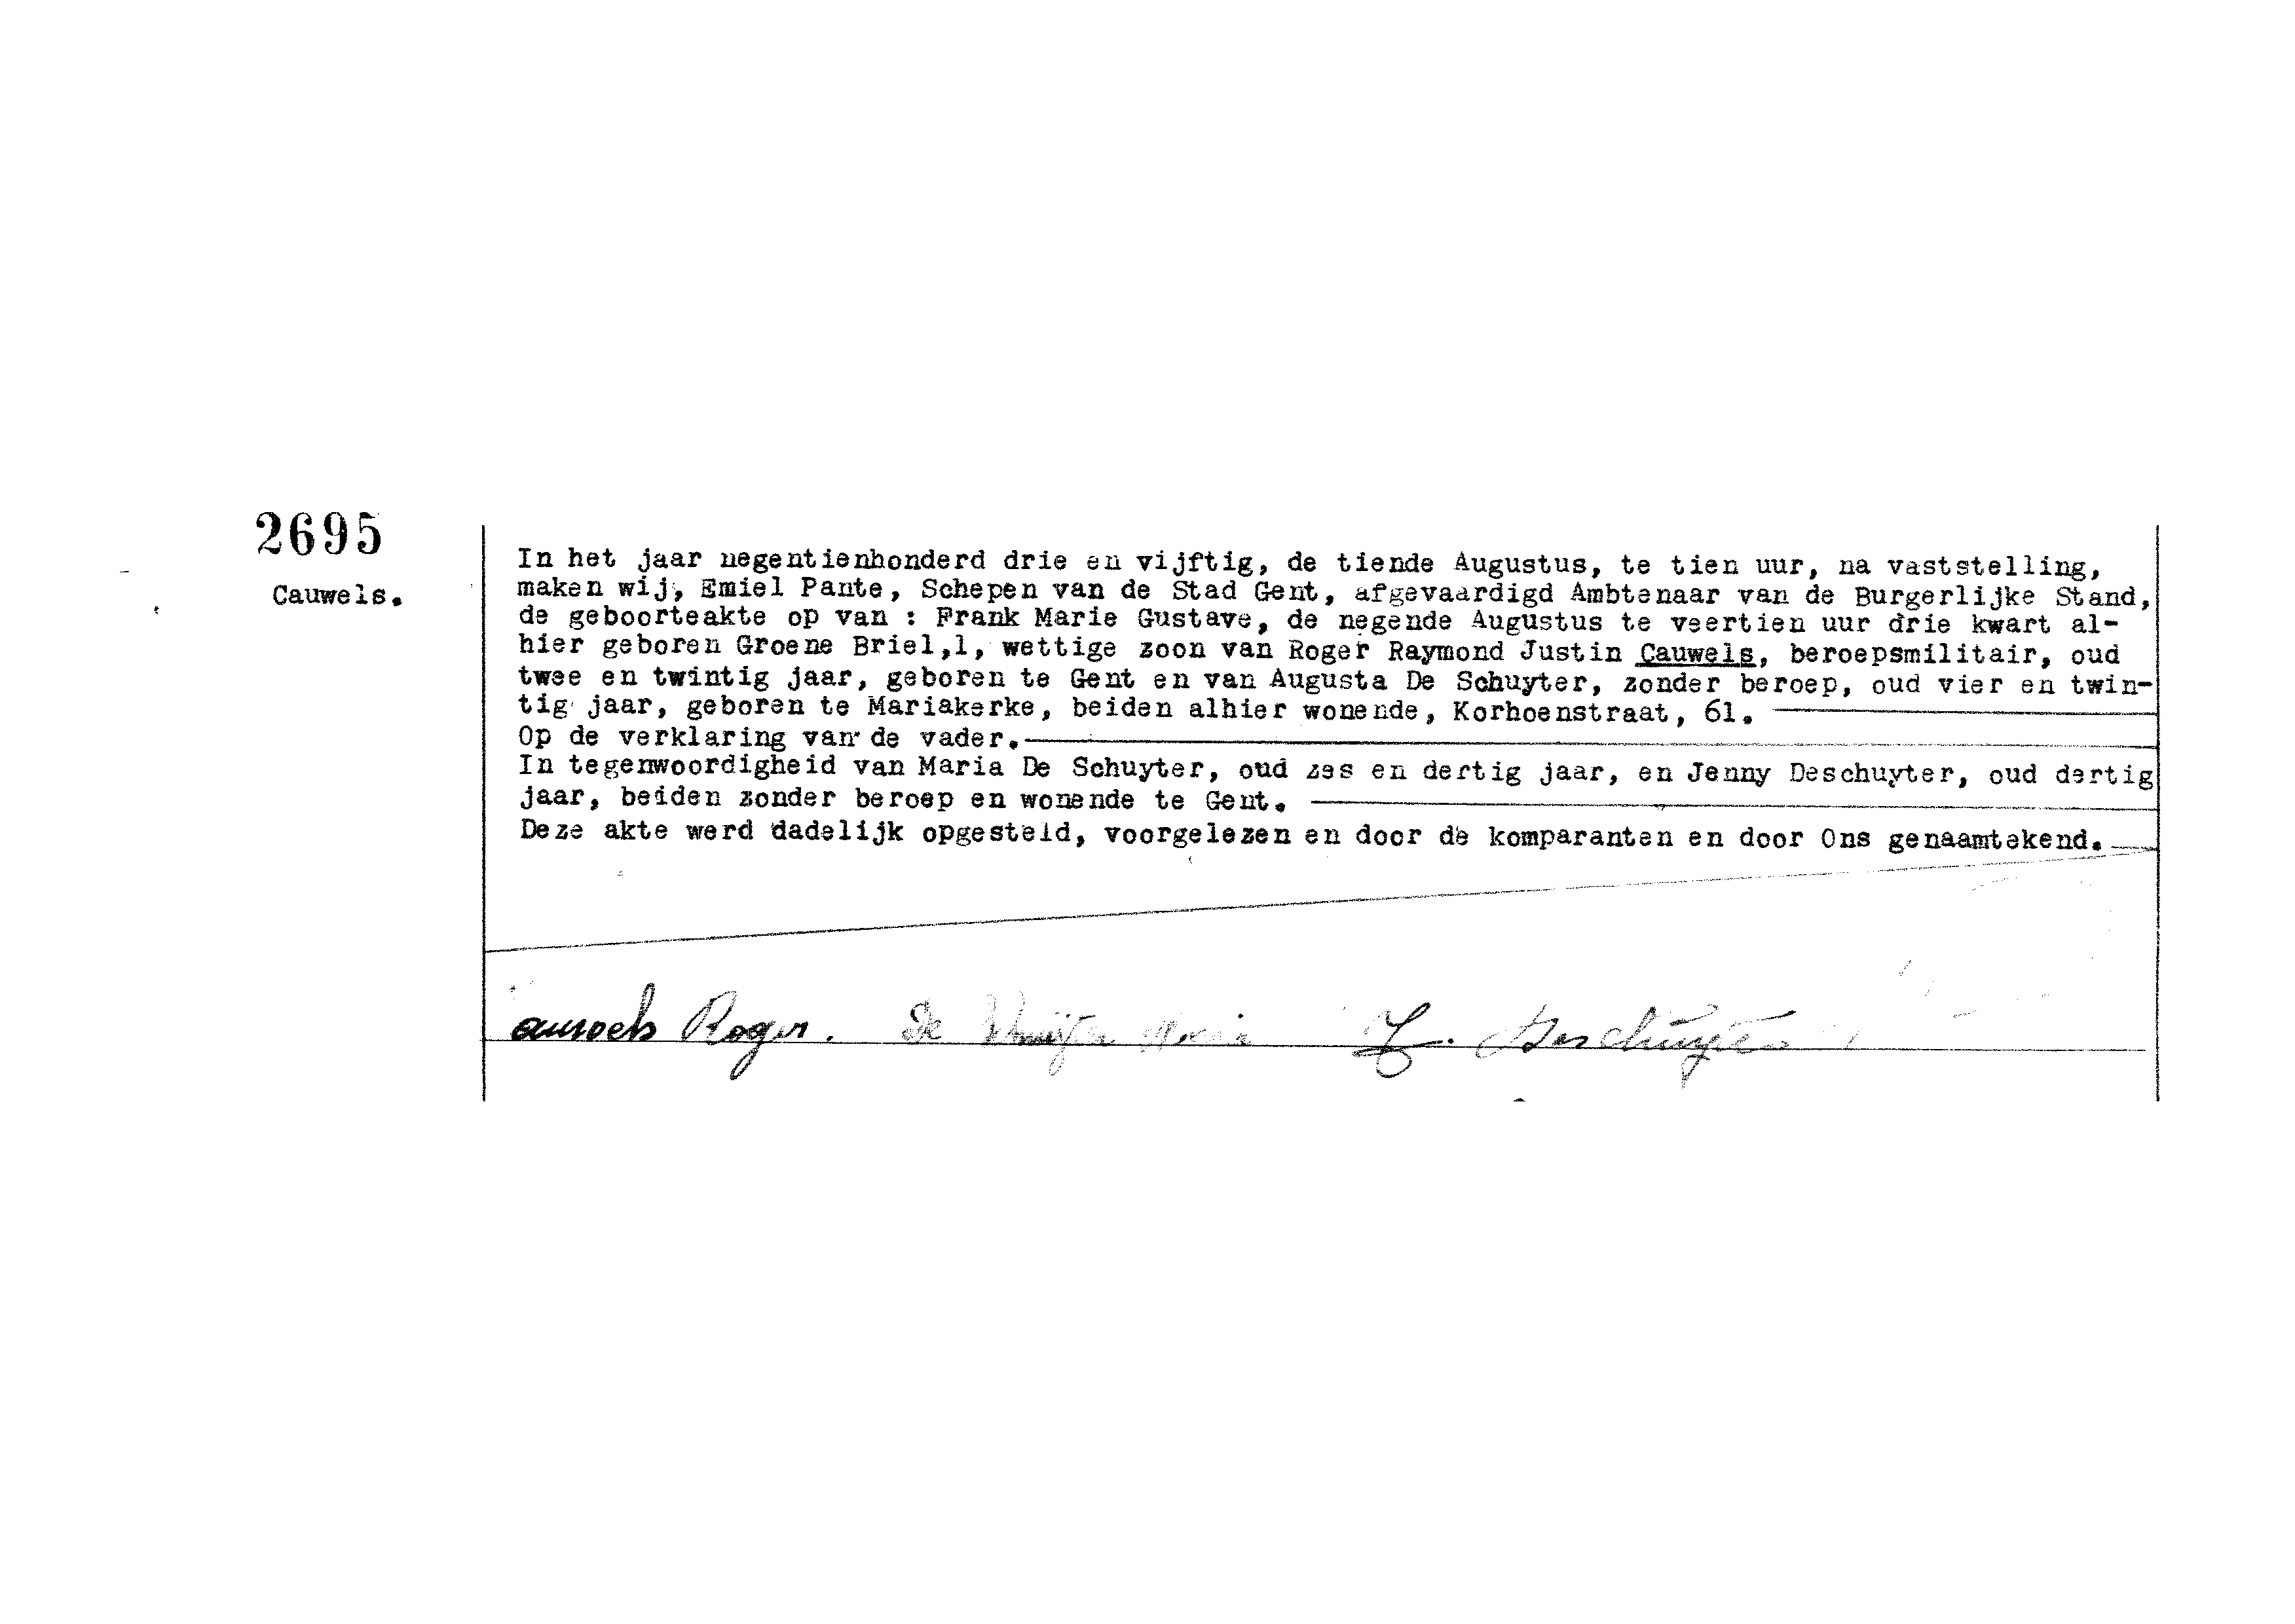 2695
Cauwels.
In het jaar negentienhonderd drie en vijftig, de tiende Augustus, te tien uur, na vaststelling,
maken wij, Emiel Pante, Schepen van de Stad Gent, afgevaardigd Ambtenaar van de Burgerlijke Stand,
de geboorteakte op van : Frank Marie Gustave, de negende Augustus te veertien uur drie kwart al-
hier geboren Groene Briel,1, wettige zoon van Roger Raymond Justin Cauwels, beroepsmilitair, oud
twee en twintig jaar, geboren te Gent en van Augusta De Schuyter, zonder beroep, oud vier en twin-
tig jaar, geboren te Mariakerke, beiden alhier wonende, Korhoenstraat, 61.
Op de verklaring van de vader.
In tegenwoordigheid van Maria De Schuyter, oud zes en dertig jaar, en Jenny Deschuyter, oud dertig
jaar, beiden zonder beroep en wonende te Gent.
Deze akte werd dadelijk opgesteld, voorgelezen en door de komparanten en door Ons genaamtekend.
auwels Roger. De Schuyter Maria J. Deschuyter